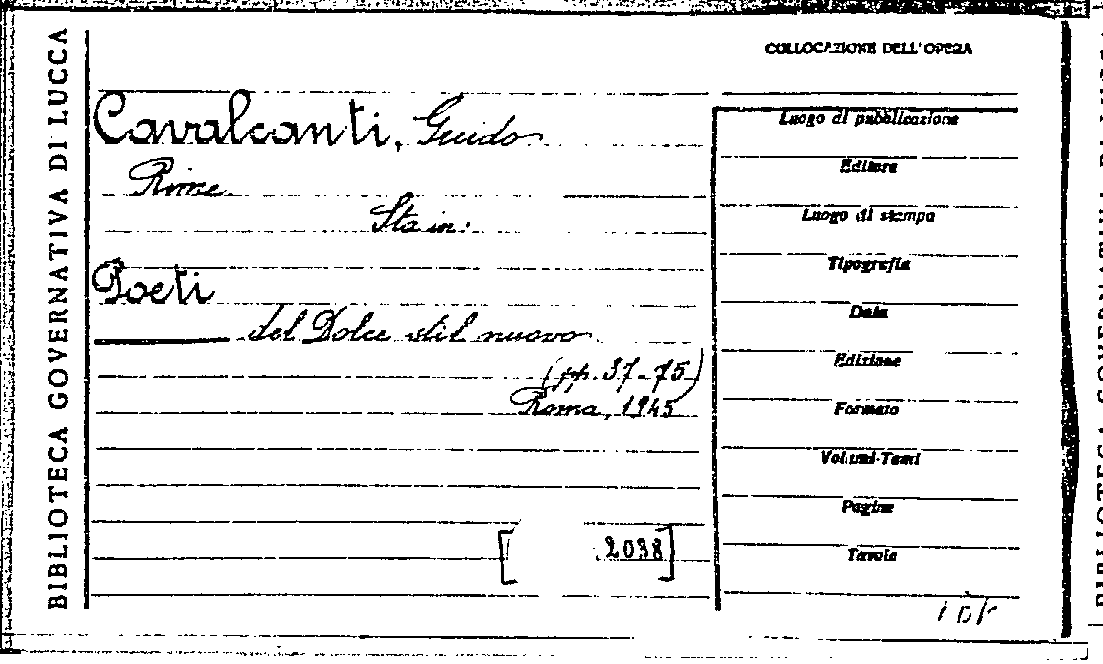 BIBLIOTECA GOVERNATIVA DI LUCCA
COLLOCAZIONE DELL'OPERA
Cavalcanti, Guido
Rime
Sta in:
Poeti
del Dolce stil nuovo
(pp. 37-75)
Roma, 1945
[ 2038]
Luogo di pubblicazione
Editore
Luogo di stampa
Tipografia
Data
Edizione
Formato
Volumi-Tomi
Pagine
Tavole